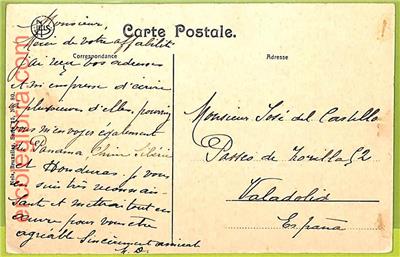 Carte Postale.
Correspondance
Adresse
Monsieur,
Merci de votre affabilité
J'ai reçu vos adresses
et m'empresse d'écrire
plusieurs d'elles, pourriez
vous m'envoyez également
de Panama, Chine
et Honduras. Je vous
en suis très reconnais-
sant et mettrai tout en
œuvre pour vous être
agréable Sincèrement
Monsieur José del Castillo
Passeo de Zorilla 52
Valladolid
España
Nels, Bruxelles